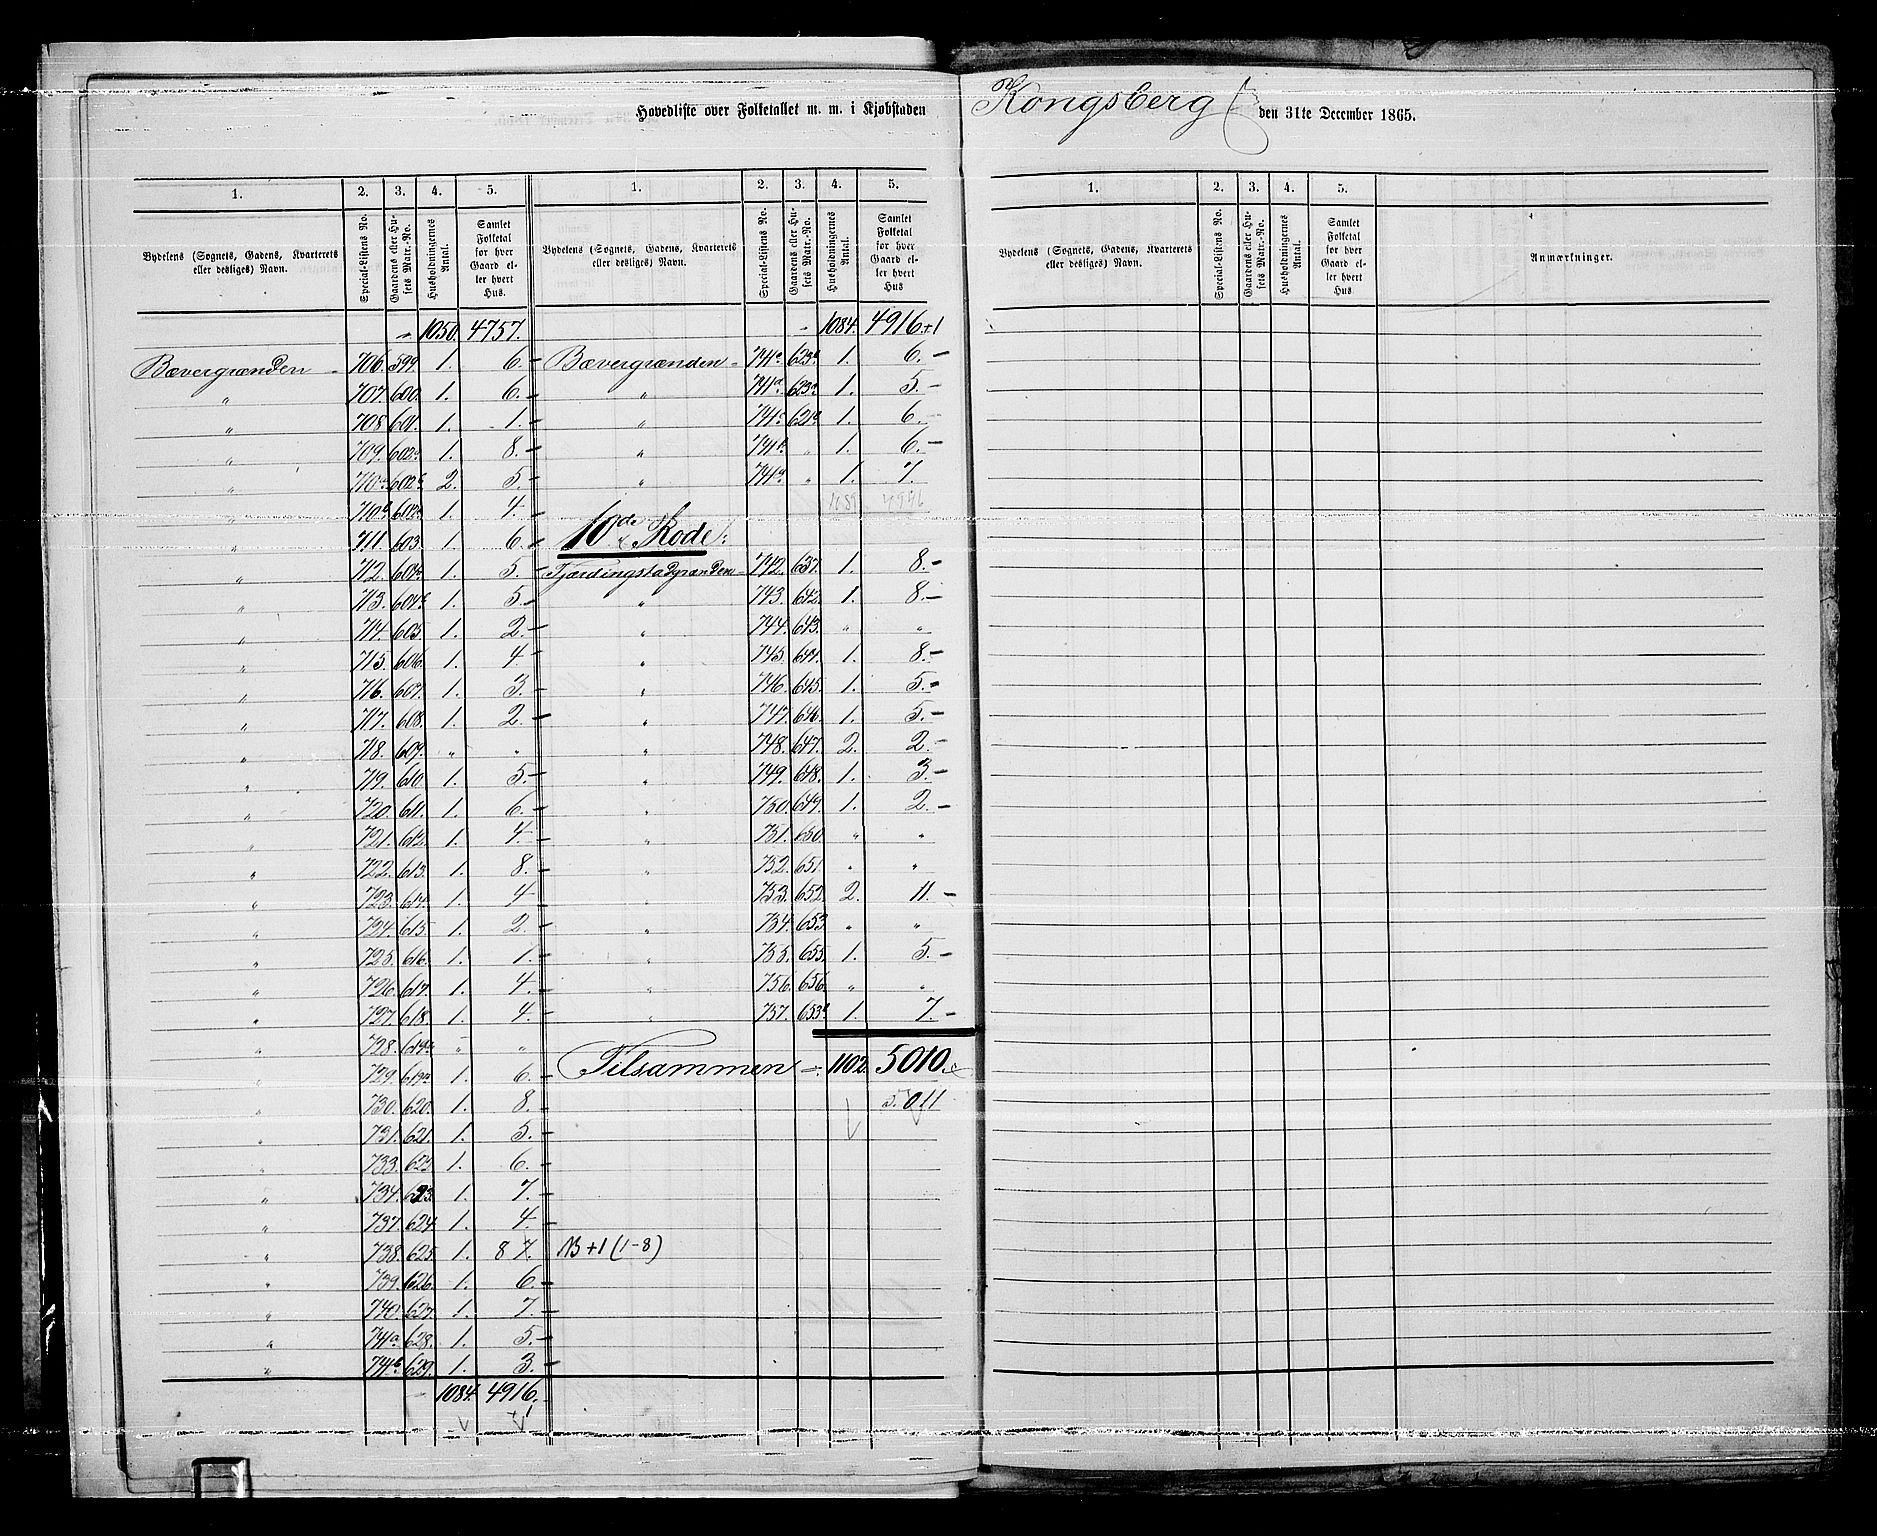 Hovedliste over Folketallet m. m. i Kjøbstaden Kongsberg den 31te December 1865.
1. 2. 3. 4. 5. 1. 2. 3. 4. 5.
Bydelens (Sognets, Gadens, Kvarterets eller desliges) Navn. Special-Listens No. Gaardens eller Husets Matr.-No. Husholdningernes Antal. Samlet Folketal for hver Gaard eller hvert Hus. Bydelens (Sognets, Gadens, Kvarterets eller desliges) Navn. Special-Listens No. Gaardens eller Husets Matr.-No. Husholdningernes Antal. Samlet Folketal for hver Gaard eller hvert Hus
1050. 4757.
Bævergrænden 706. 599. 1. 6.
" 707. 600. 1. 6.
" 708. 601. 1. 1.
" 709. 602a 1. 8.
" 710a 602b 2. 5.
" 710b 602c 1. 4.
" 711. 603. 1. 6.
" 712. 604a 1. 5.
" 713. 604b 1. 5.
" 714. 605. 1. 2.
" 715. 606. 1. 4.
" 716. 607. 1. 3.
" 717. 608. 1. 2.
" 718. 609. " "
" 719. 610. 1. 5.
" 720. 611. 1. 6.
" 721. 612. 1. 4.
" 722. 613. 1. 8.
" 723. 614. 1. 4
" 724. 615. 1. 2.
" 725. 616. 1. 1.
" 726. 617. 1. 4.
" 727. 618. 1. 4.
" 728. 619a " "
" 729. 619b 1. 6.
" 730. 620. 1. 8.
" 731. 621. 1. 5.
" 733. 623 1. 6.
" 734. 623. 1. 7.
" 737. 624. 1. 4.
" 738. 625. 1. 8 7. NB +1 (1-8)
" 739. 626. 1. 6.
" 740. 627. 1. 7.
" 741a 628. 1. 5.
" 741b 629. 1. 3.
1084. 4916.
+1
1084. 4916+1
Bævergrænden 1. 6.
" 1. 5.
" 1. 6.
" 741 " 1. 6.
" 741 " 1. 7.
1089 4946
10de Rode:
Fjærdingstadgrænden 742. 637. 1. 8.
" 743. 642. 1. 8.
" 744. 643. " "
" 745. 644. 1. 8.
" 746. 645. 1. 5.
" 747. 646. 1. 5.
" 748. 647. 2. 2.
" 749. 648. 1. 3.
" 750. 649. 1. 2.
" 751. 650. " "
" 752. 651. " "
" 753. 652. 2. 11.
" 754. 653. " "
" 755. 655. 1. 5.
" 756. 656. " "
" 757. 653b 1. 7.
Tilsammen 1102. 5010.
5.011
1. 2. 3. 4. 5.
Bydelens (Sognets, Gadens, Kvarterets eller desliges) Navn. Special-Listens No. Gaardens eller Husets Matr.-No. Husholdningernes Antal. Samlet Folketal for hver Gaard eller hvert Hus Anmærkninger.